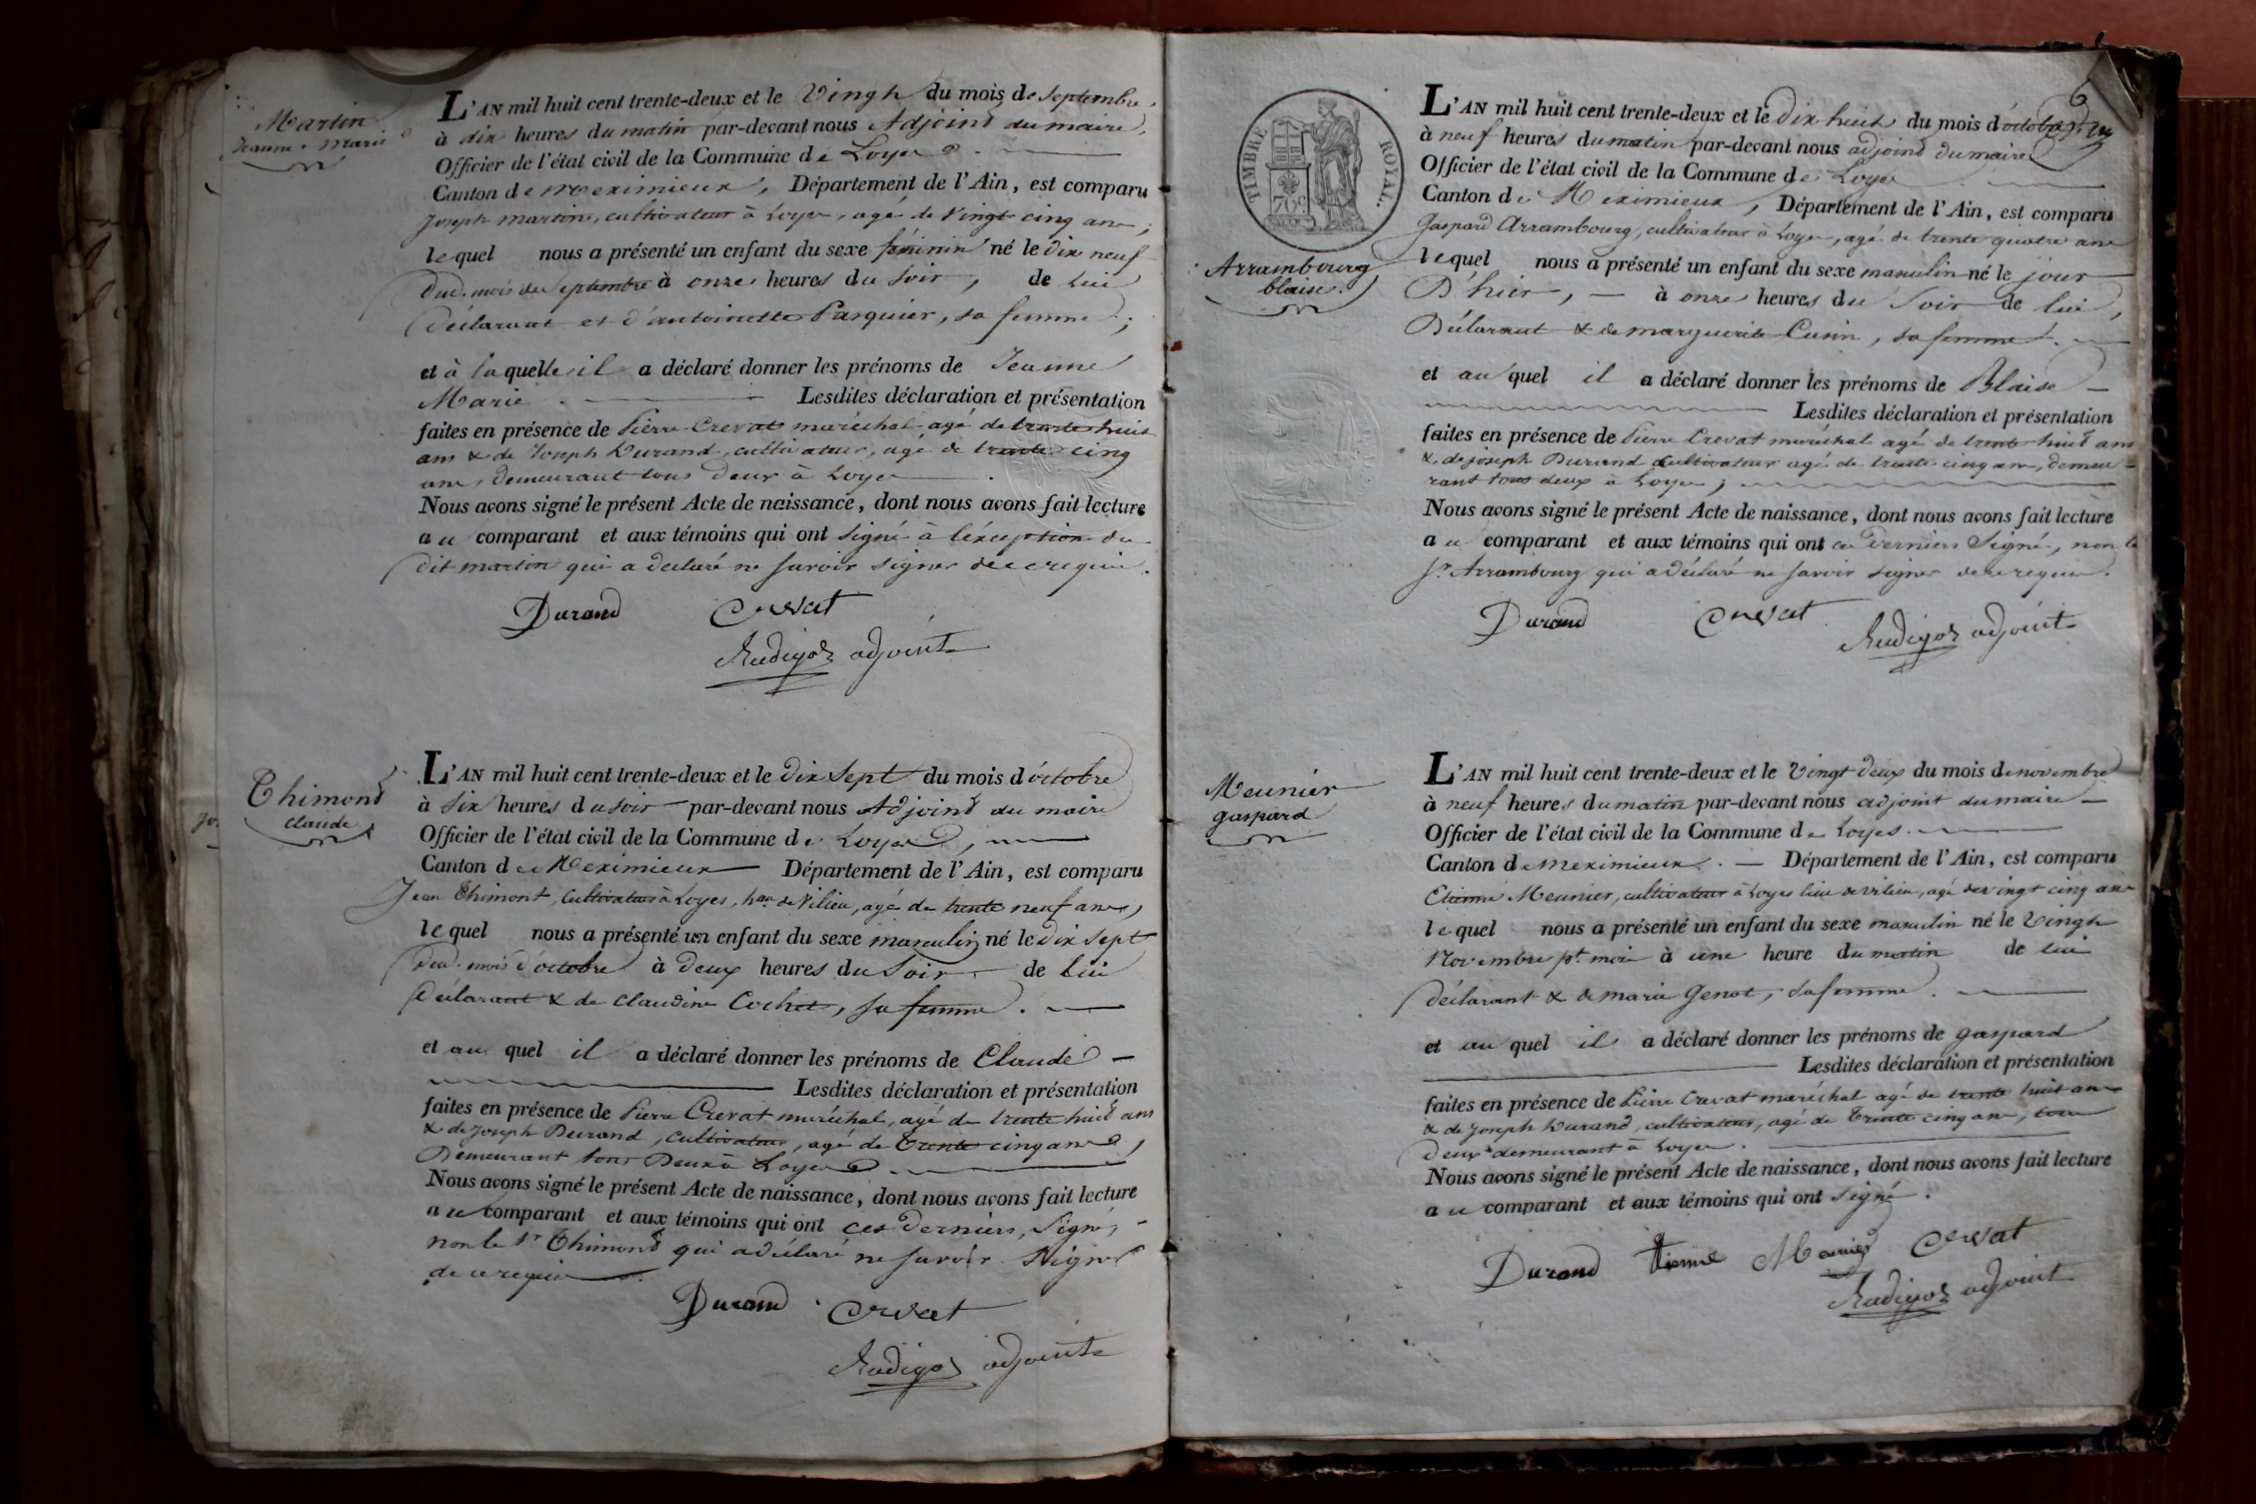 Martin
Jeanne Marie
L'AN mil huit cent trente-deux et le Vingt du mois de Septembre
à dix heures du matin par-devant nous Adjoint du maire,
Officier de l'état civil de la Commune de Loyes
Canton de Meximieux, Département de l'Ain, est comparu
Joseph Martin, cultivateur à Loyes, agé de vingt cinq ans;
lequel nous a présenté un enfant du sexe féminin né le dix neuf
dud. mois de Septembre à onze heures du soir, de lui
Déclarant et d'antoinette Pasquier, sa femme;
et à laquelle il a déclaré donner les prénoms de Jeanne
Marie. Lesdites déclaration et présentation
faites en présence de Pierre Crevat maréchal agé de trente huit
ans & de Joseph Durand, cultivateur, agé de trente cinq
ans, demeurant tous deux à Loyes
Nous avons signé le présent Acte de naissance, dont nous avons fait lecture
au comparant et aux témoins qui ont signé à l'éxception du
dit martin qui a déclaré ne savoir signer de ce requis.
Durand Crevat
Rudigoz adjoint
Thimond
claude
L'AN mil huit cent trente-deux et le dix Sept du mois d'octobre
à Six heures du soir par-devant nous Adjoint du maire
Officier de l'état civil de la Commune de Loyes,
Canton de Meximieux Département de l'Ain, est comparu
Jean Thimont, Cultivateur à Loyes, hau. de Vilieu, agé de trente neuf ans,
lequel nous a présenté un enfant du sexe masculin né le dix sept
dud. mois d'octobre à deux heures du Soir de lui
Déclarant & de Claudine Cochet, sa femme.
et au quel il a déclaré donner les prénoms de Claude
Lesdites déclaration et présentation
faites en présence de Pierre Crevat maréchal, agé de trente huit ans
& de Joseph Durand, cultivateur, agé de trente cinq ans,
Demeurant tous Deux à Loyes
Nous avons signé le présent Acte de naissance, dont nous avons fait lecture
au comparant et aux témoins qui ont ces derniers, Signé,
non le Sr Thimond qui a déclaré ne savoir Signer
de ce requis
Durand Crevat
Rudigoz adjoint
TIMBRE ROYAL.
70c
6
Arrambourg
blaise.
L'AN mil huit cent trente-deux et le dix huit du mois d'octobre
à neuf heures du matin par-devant nous adjoint du maire
Officier de l'état civil de la Commune de Loyes
Canton de Meximieux, Département de l'Ain, est comparu
Gaspard Arrambourg, cultivateur à Loyes, agé de trente quatre ans
lequel nous a présenté un enfant du sexe masculin né le jour
D'hier, à onze heures du Soir de lui,
Déclarant & de marguerite Cusin, sa femme.
et au quel il a déclaré donner les prénoms de Blaise
Lesdites déclaration et présentation
faites en présence de Pierre Crevat maréchal agé de trente huit ans
& de joseph Durand cultivateur agé de trente cinq ans, demeu-
rant tous deux à Loyes;
Nous avons signé le présent Acte de naissance, dont nous avons fait lecture
au comparant et aux témoins qui ont ces derniers Signé, non le
Sr Arrambourg qui a déclaré ne savoir signer de ce requis.
Durand Crevat
Rudigoz adjoint
Meunier
gaspard
L'AN mil huit cent trente-deux et le Vingt deux du mois de novembre
à neuf heures du matin par-devant nous adjoint du maire
Officier de l'état civil de la Commune de Loyes.
Canton de meximieux. Département de l'Ain, est comparu
Etienne Meunier, cultivateur à Loyes lieu de vilieu, agé de vingt cinq ans
lequel nous a présenté un enfant du sexe masculin né le Vingt
Novembre pt. mois à une heure du matin de lui
déclarant & de marie Genot, sa femme.
et au quel il a déclaré donner les prénoms de gaspard
Lesdites déclaration et présentation
faites en présence de Pierre Crevat maréchal agé de trente huit ans
& de Joseph Durand, cultivateur, agé de trente cinq ans, tous
deux demeurant à Loyes.
Nous avons signé le présent Acte de naissance, dont nous avons fait lecture
au comparant et aux témoins qui ont signé.
Durand Etienne Meunier Crevat
Rudigoz adjoint